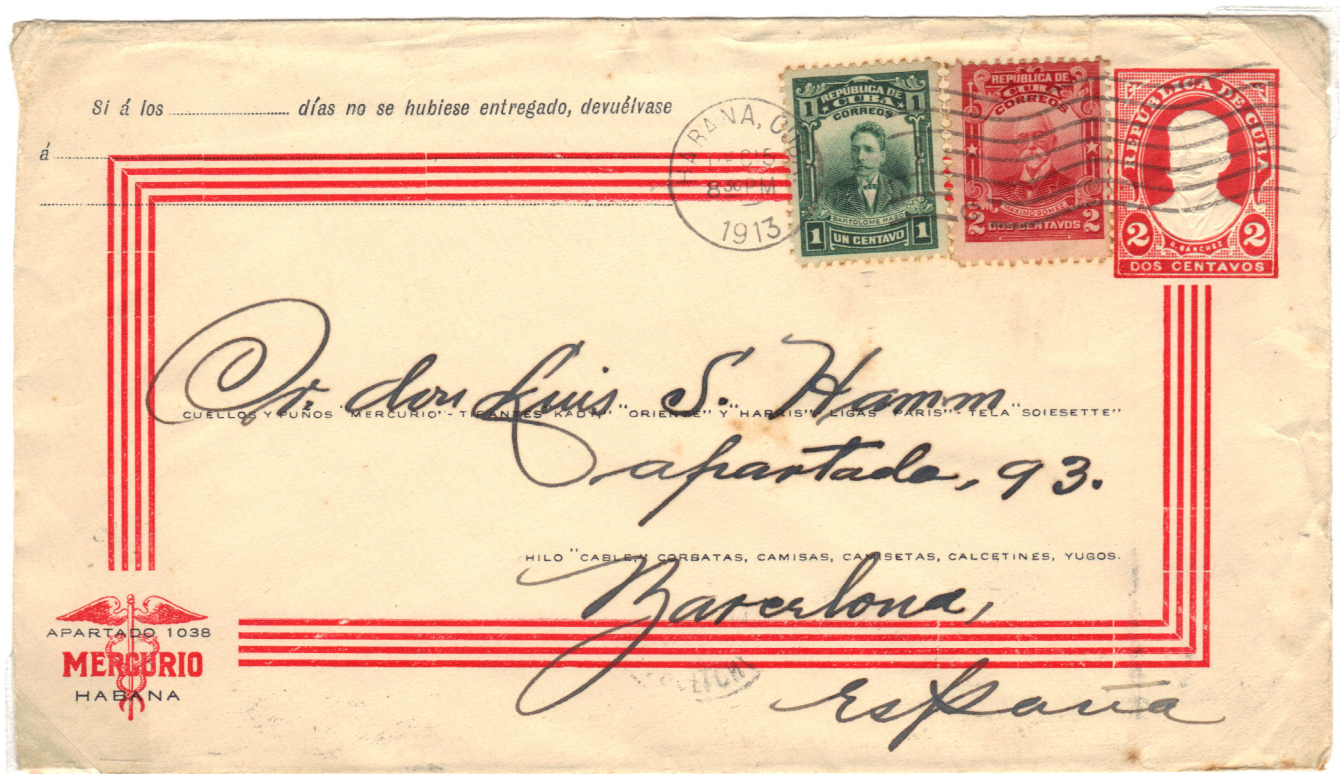 Si á los ............ días no se hubiese entregado, devuélvase
á
HABANA, CU
8 30 PM
1913
REPÚBLICA DE
CUBA
CORREOS
1 1
BARTOLOMÉ MASÓ
1 UN CENTAVO 1
REPÚBLICA DE
CUBA
CORREOS
MÁXIMO GÓMEZ
2 DOS CENTAVOS 2
REPUBLICA DE CUBA
2 2
S. SANCHEZ
DOS CENTAVOS
Sr. don Luis S. Hamm
CUELLOS Y PUÑOS "MERCURIO" - TIRANTES "KADY" "ORIENTE" Y "HARRIS" - LIGAS "PARIS" - TELA "SOIESETTE"
apartado, 93.
HILO "CABLE," CORBATAS, CAMISAS, CAMISETAS, CALCETINES, YUGOS.
Barcelona,
España
APARTADO 1038
MERCURIO
HABANA